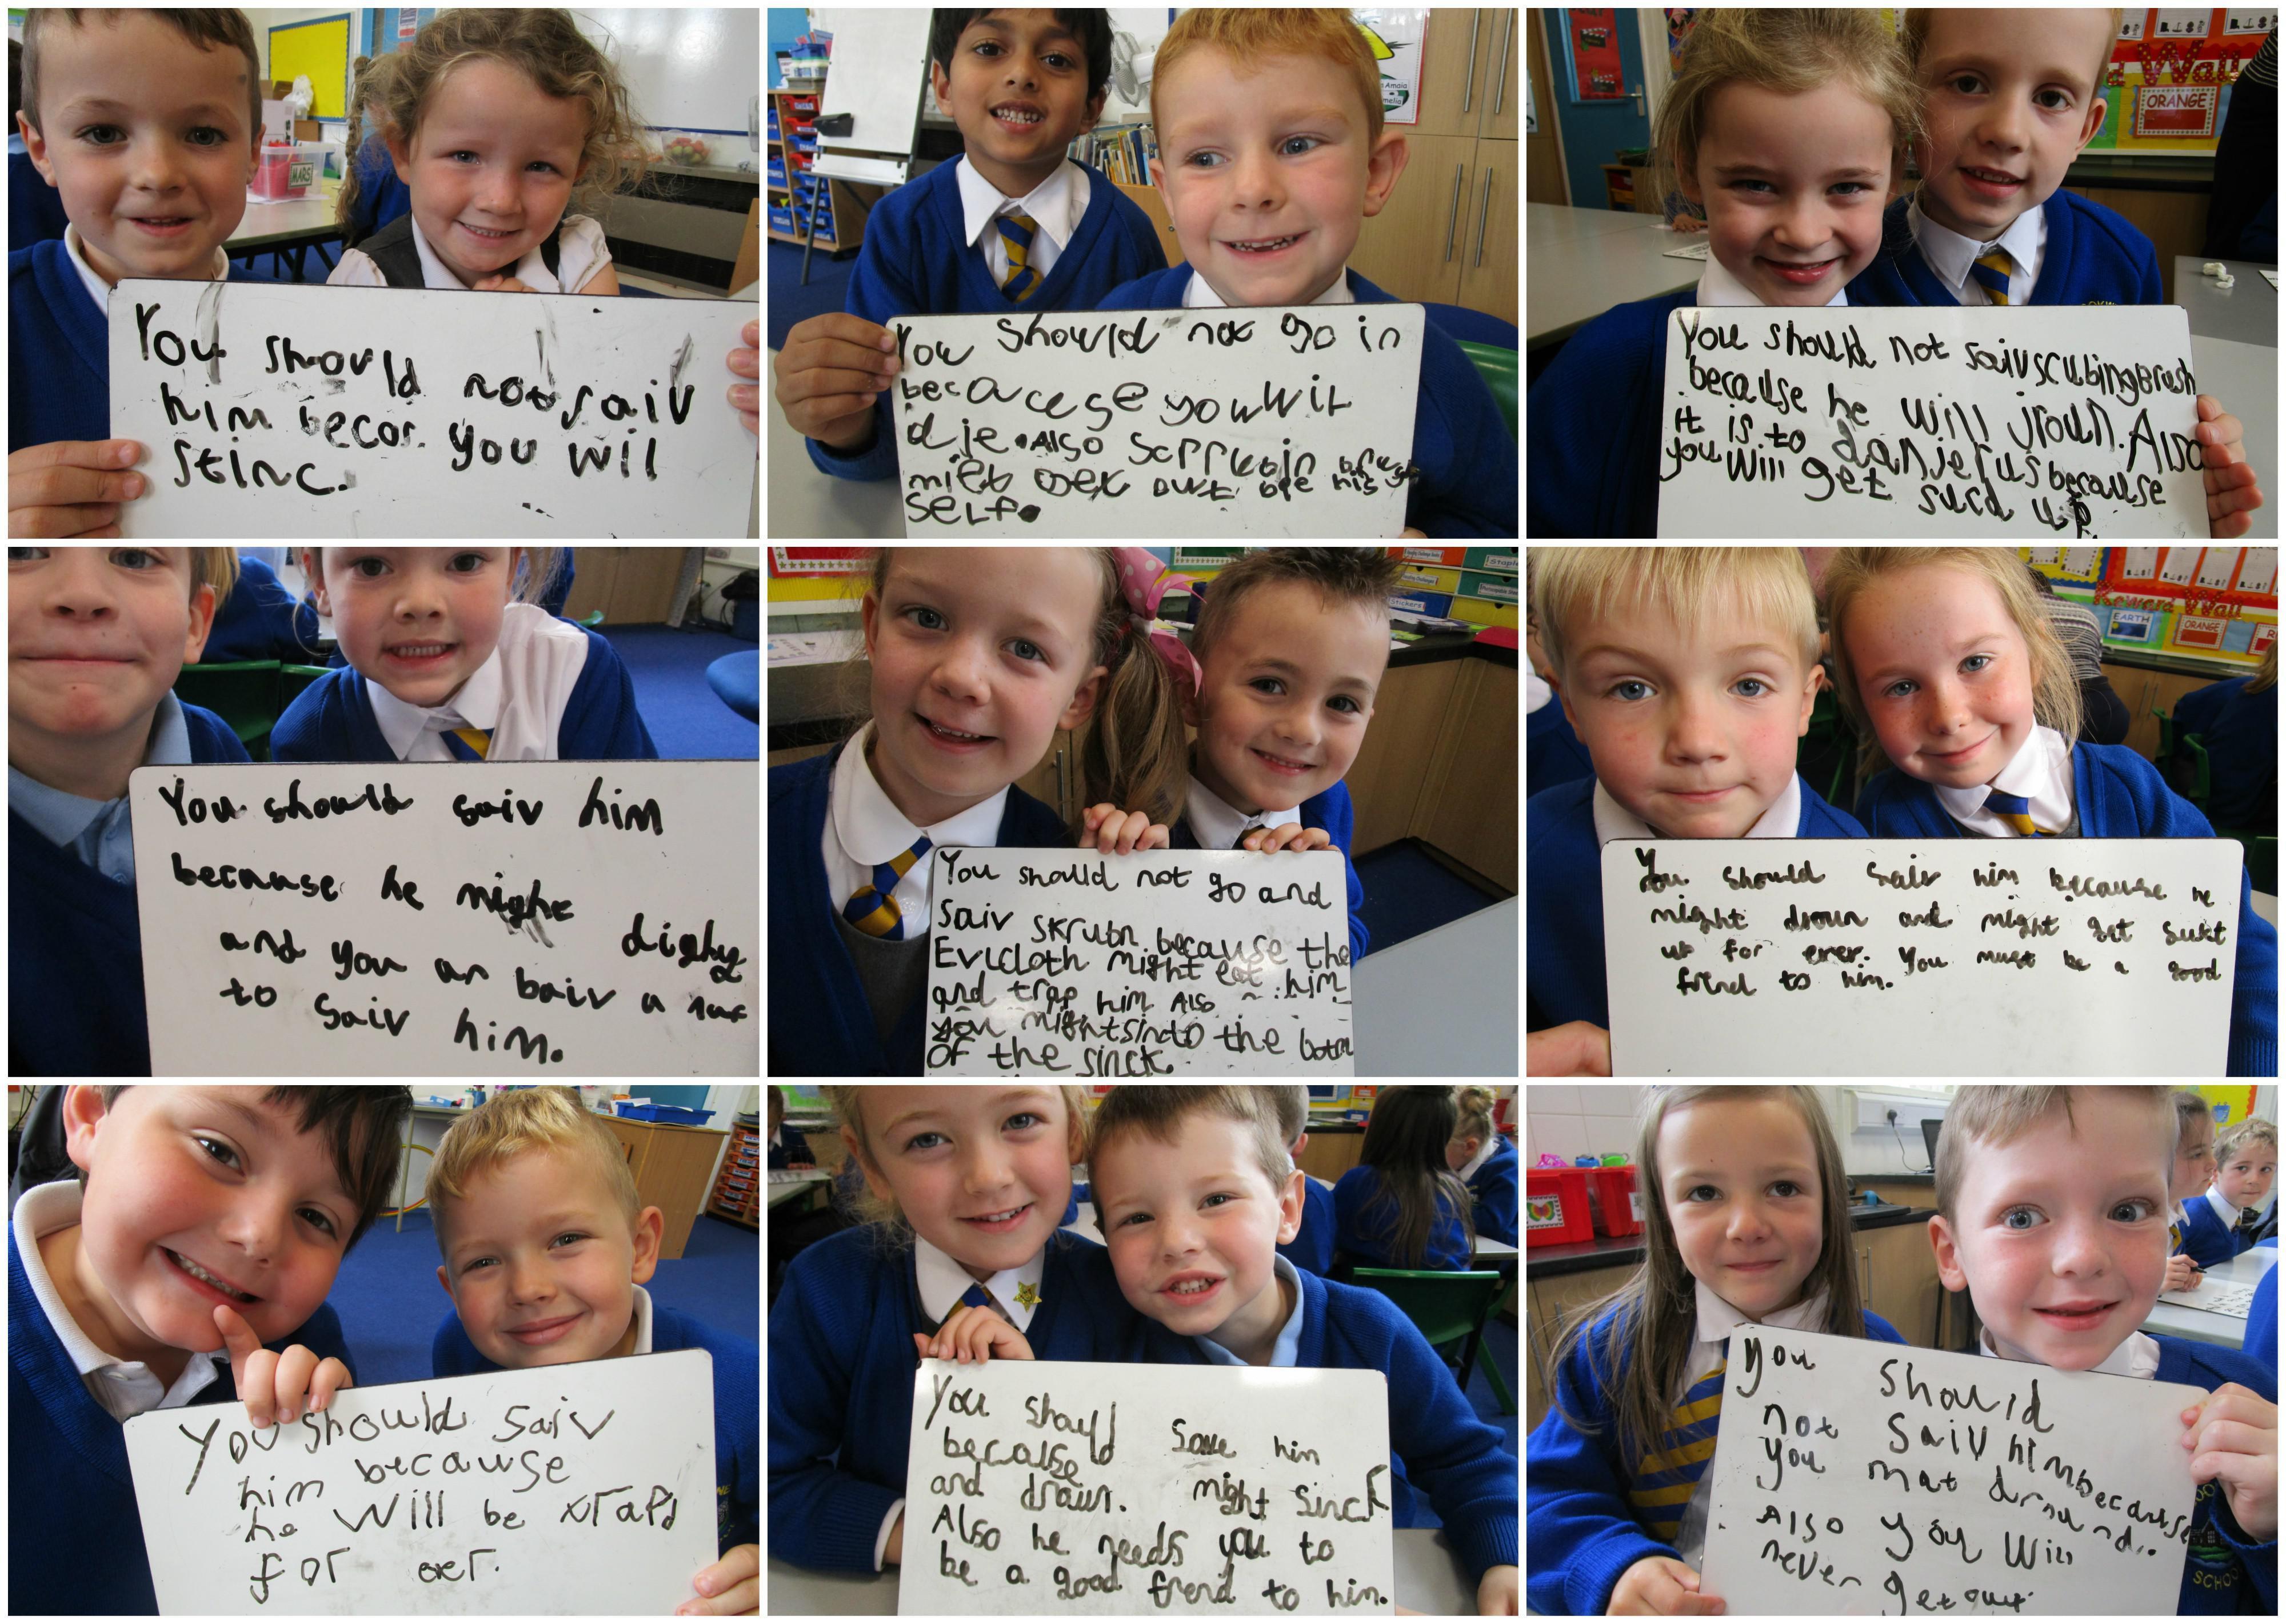 MARS
You should not saiv
him becor. you wil
stinc.
Amaia
melia
You should not go in
becacuse you wil
die. Also
self.
Wall
ORANGE
You should not saiv scubingbrush
because he will jroun. Also
it is to danjerus because
you will get sucd up.
You should saiv him
because he might
and you ar baiv
to saiv him.
Stickers
You should not go and
saiv skrubn because the
Evlcloth might eat him
and trap him Also
you might sinc to the
of the sinck.
Reward Wall
EARTH
ORANGE
You should saiv him because he
might droun and might get suckt
up for ever. You must be a good
frend to him.
You should saiv
him because
he will be trapd
for ever.
You should save him
because
and draun. might sinck
Also he needs you to
be a good frend to him.
You should
not saiv him because
you
Also you will
never get out.
SCHOO